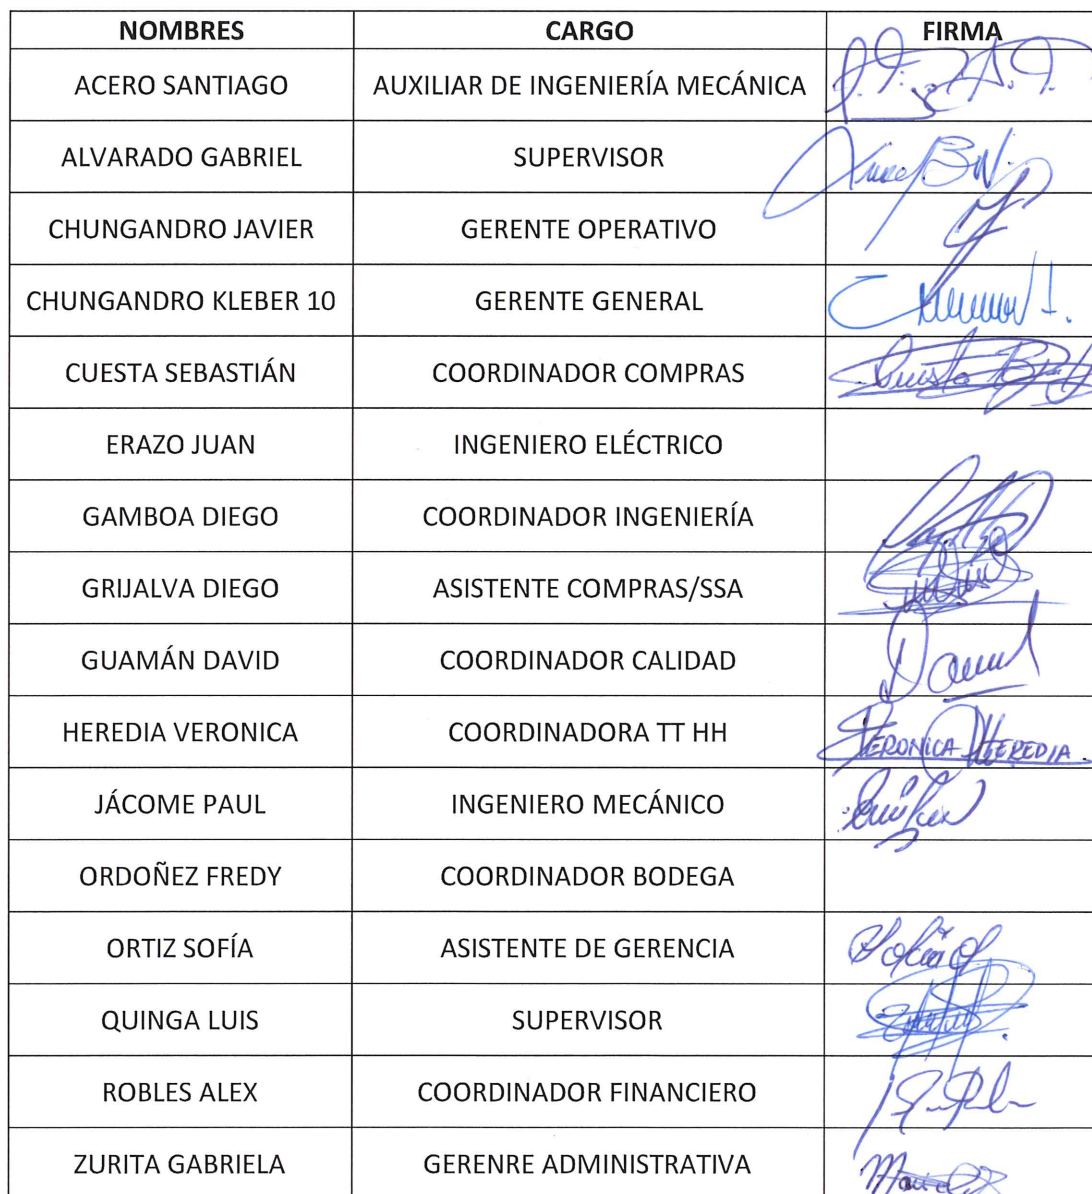 NOMBRES CARGO FIRMA
ACERO SANTIAGO AUXILIAR DE INGENIERÍA MECÁNICA
ALVARADO GABRIEL SUPERVISOR
CHUNGANDRO JAVIER GERENTE OPERATIVO
CHUNGANDRO KLEBER 10 GERENTE GENERAL
CUESTA SEBASTIÁN COORDINADOR COMPRAS
ERAZO JUAN INGENIERO ELÉCTRICO
GAMBOA DIEGO COORDINADOR INGENIERÍA
GRIJALVA DIEGO ASISTENTE COMPRAS/SSA
GUAMÁN DAVID COORDINADOR CALIDAD
HEREDIA VERONICA COORDINADORA TT HH VERONICA HEREDIA
JÁCOME PAUL INGENIERO MECÁNICO
ORDOÑEZ FREDY COORDINADOR BODEGA
ORTIZ SOFÍA ASISTENTE DE GERENCIA
QUINGA LUIS SUPERVISOR
ROBLES ALEX COORDINADOR FINANCIERO
ZURITA GABRIELA GERENRE ADMINISTRATIVA